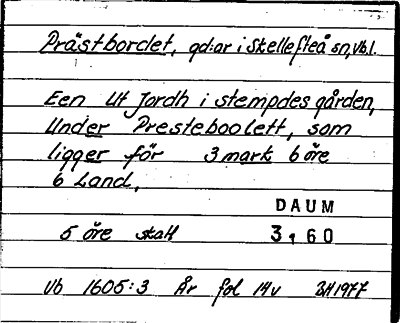 Prästbordet, gd:ar i Skellefteå sn, Vb l.
Een Ut Jordh i stempdes gården,
Under Presteboolett, som
ligger för 3 mark 6 öre
6 Land,
DAUM
5 öre skatt 3,60
Vb 1605:3 År fol 14v BH 1977